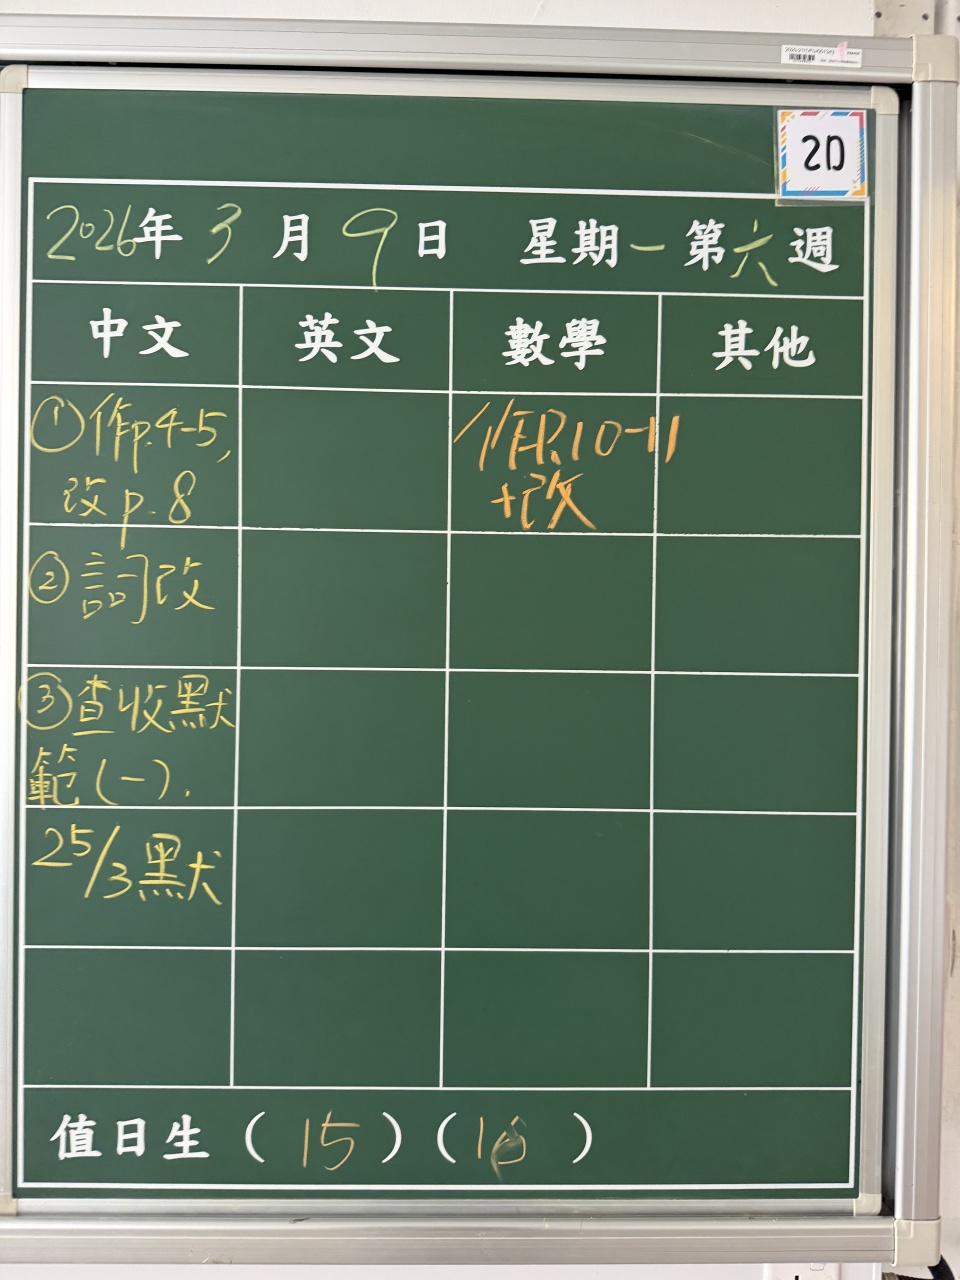 2D
2026年 3 月 9 日 星期一 第六週
中文 英文 數學 其他
①作p.4-5,
改p.8
作P.10-11
+改
②詞改
③查收默
範(一).
25/3默
值日生 ( 15 ) ( )